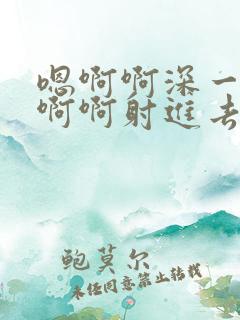 嗯啊啊深一
啊啊射进去
鲍莫尔
未经同意禁止转载